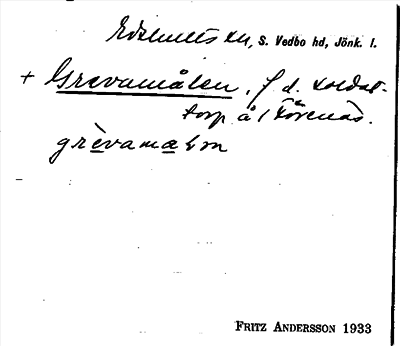 Edshults sn, S. Vedbo hd, Jönk. l.
+ Grevamålen, f. d. soldat-
torp å 1 Förenäs.
grèvamałən
FRITZ ANDERSSON 1933